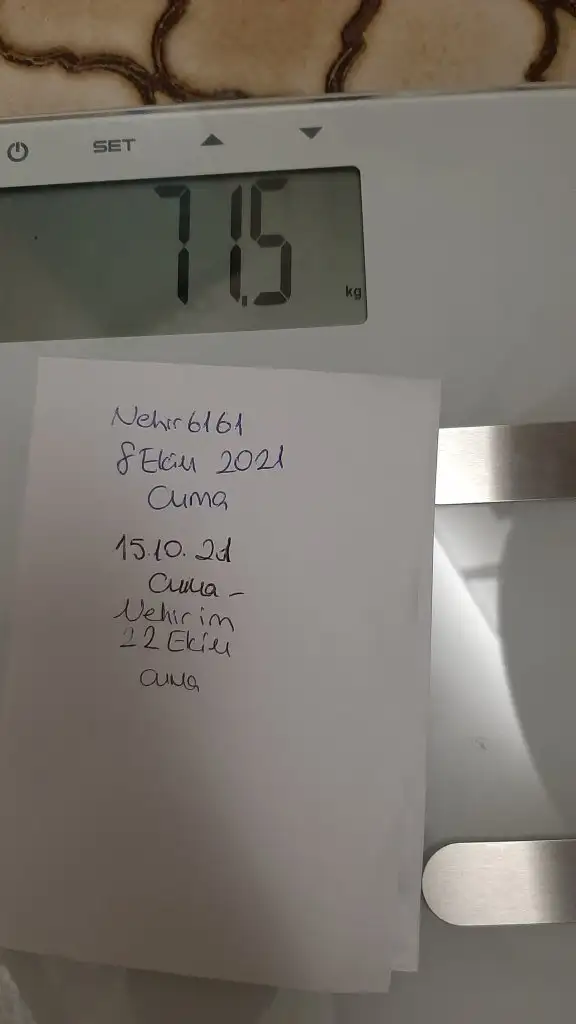 SET
71.5
kg
Nehir6161
8 Ekim 2021
Cuma
15.10.21
Cuma -
Nehirim
22 Ekim
Cuma